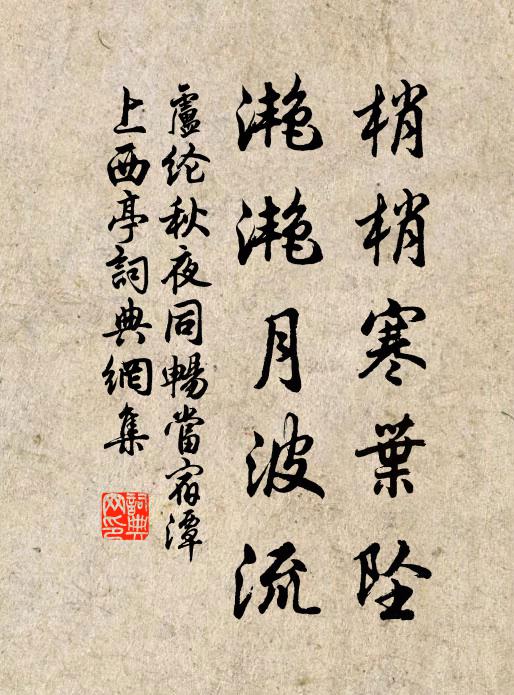 梢梢寒葉坠
灔灔月波流
盧纶秋夜同暢當宿潭
上西亭詞典網集
詞典网印